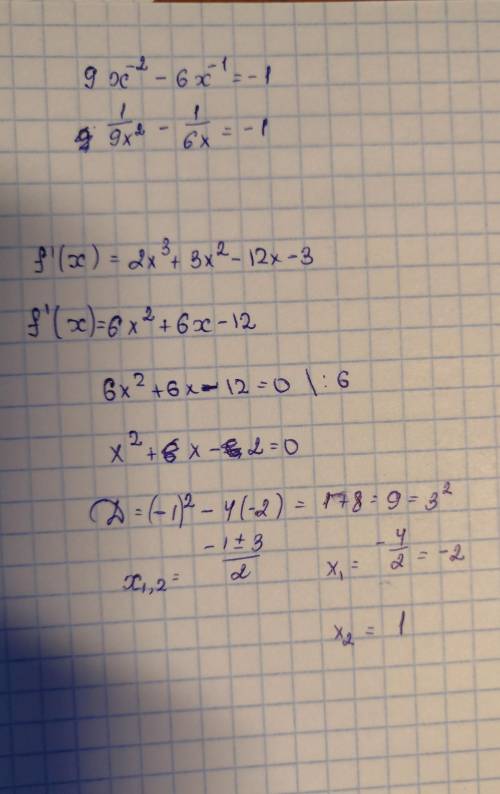 9x⁻² - 6x⁻¹ = -1
1/9x² - 1/6x = -1
f'(x) = 2x³ + 3x² - 12x - 3
f'(x) = 6x² + 6x - 12
6x² + 6x - 12 = 0 \ : 6
x² + x - 2 = 0
D = (-1)² - 4(-2) = 1+8 = 9 = 3²
x₁,₂ = -1±3/2 x₁ = -4/2 = -2
x₂ = 1